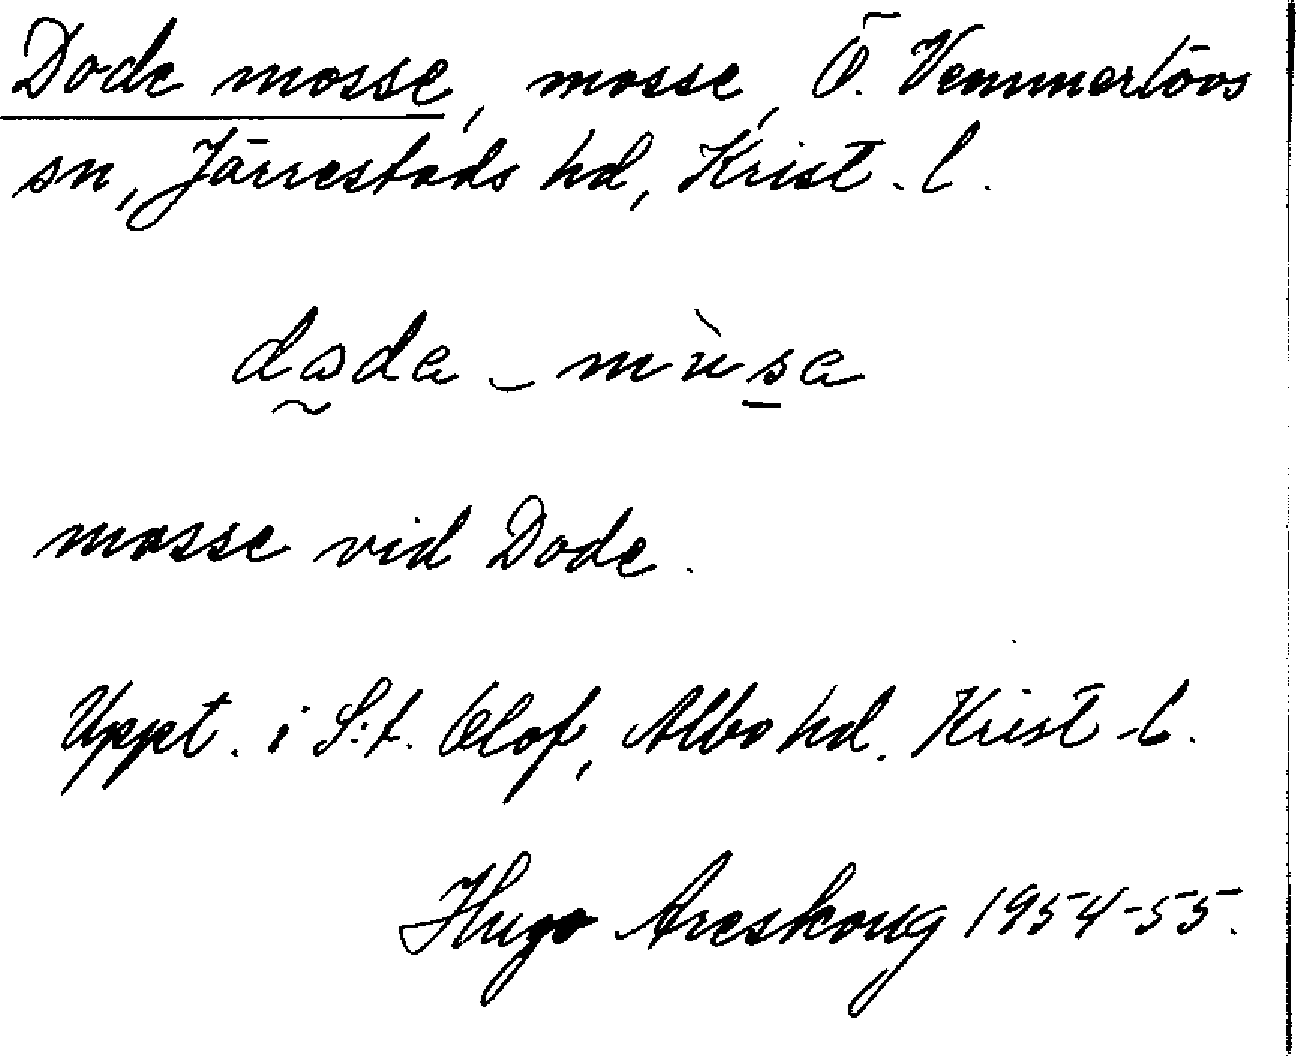 Dode mosse, mosse, Ö. Vemmerlövs
sn, Järrestads hd, Krist. l.
mosse vid Dode.
Uppt. i S:t. Olof, Albo hd. Krist l.
Hugo Areskoug 1954-55.